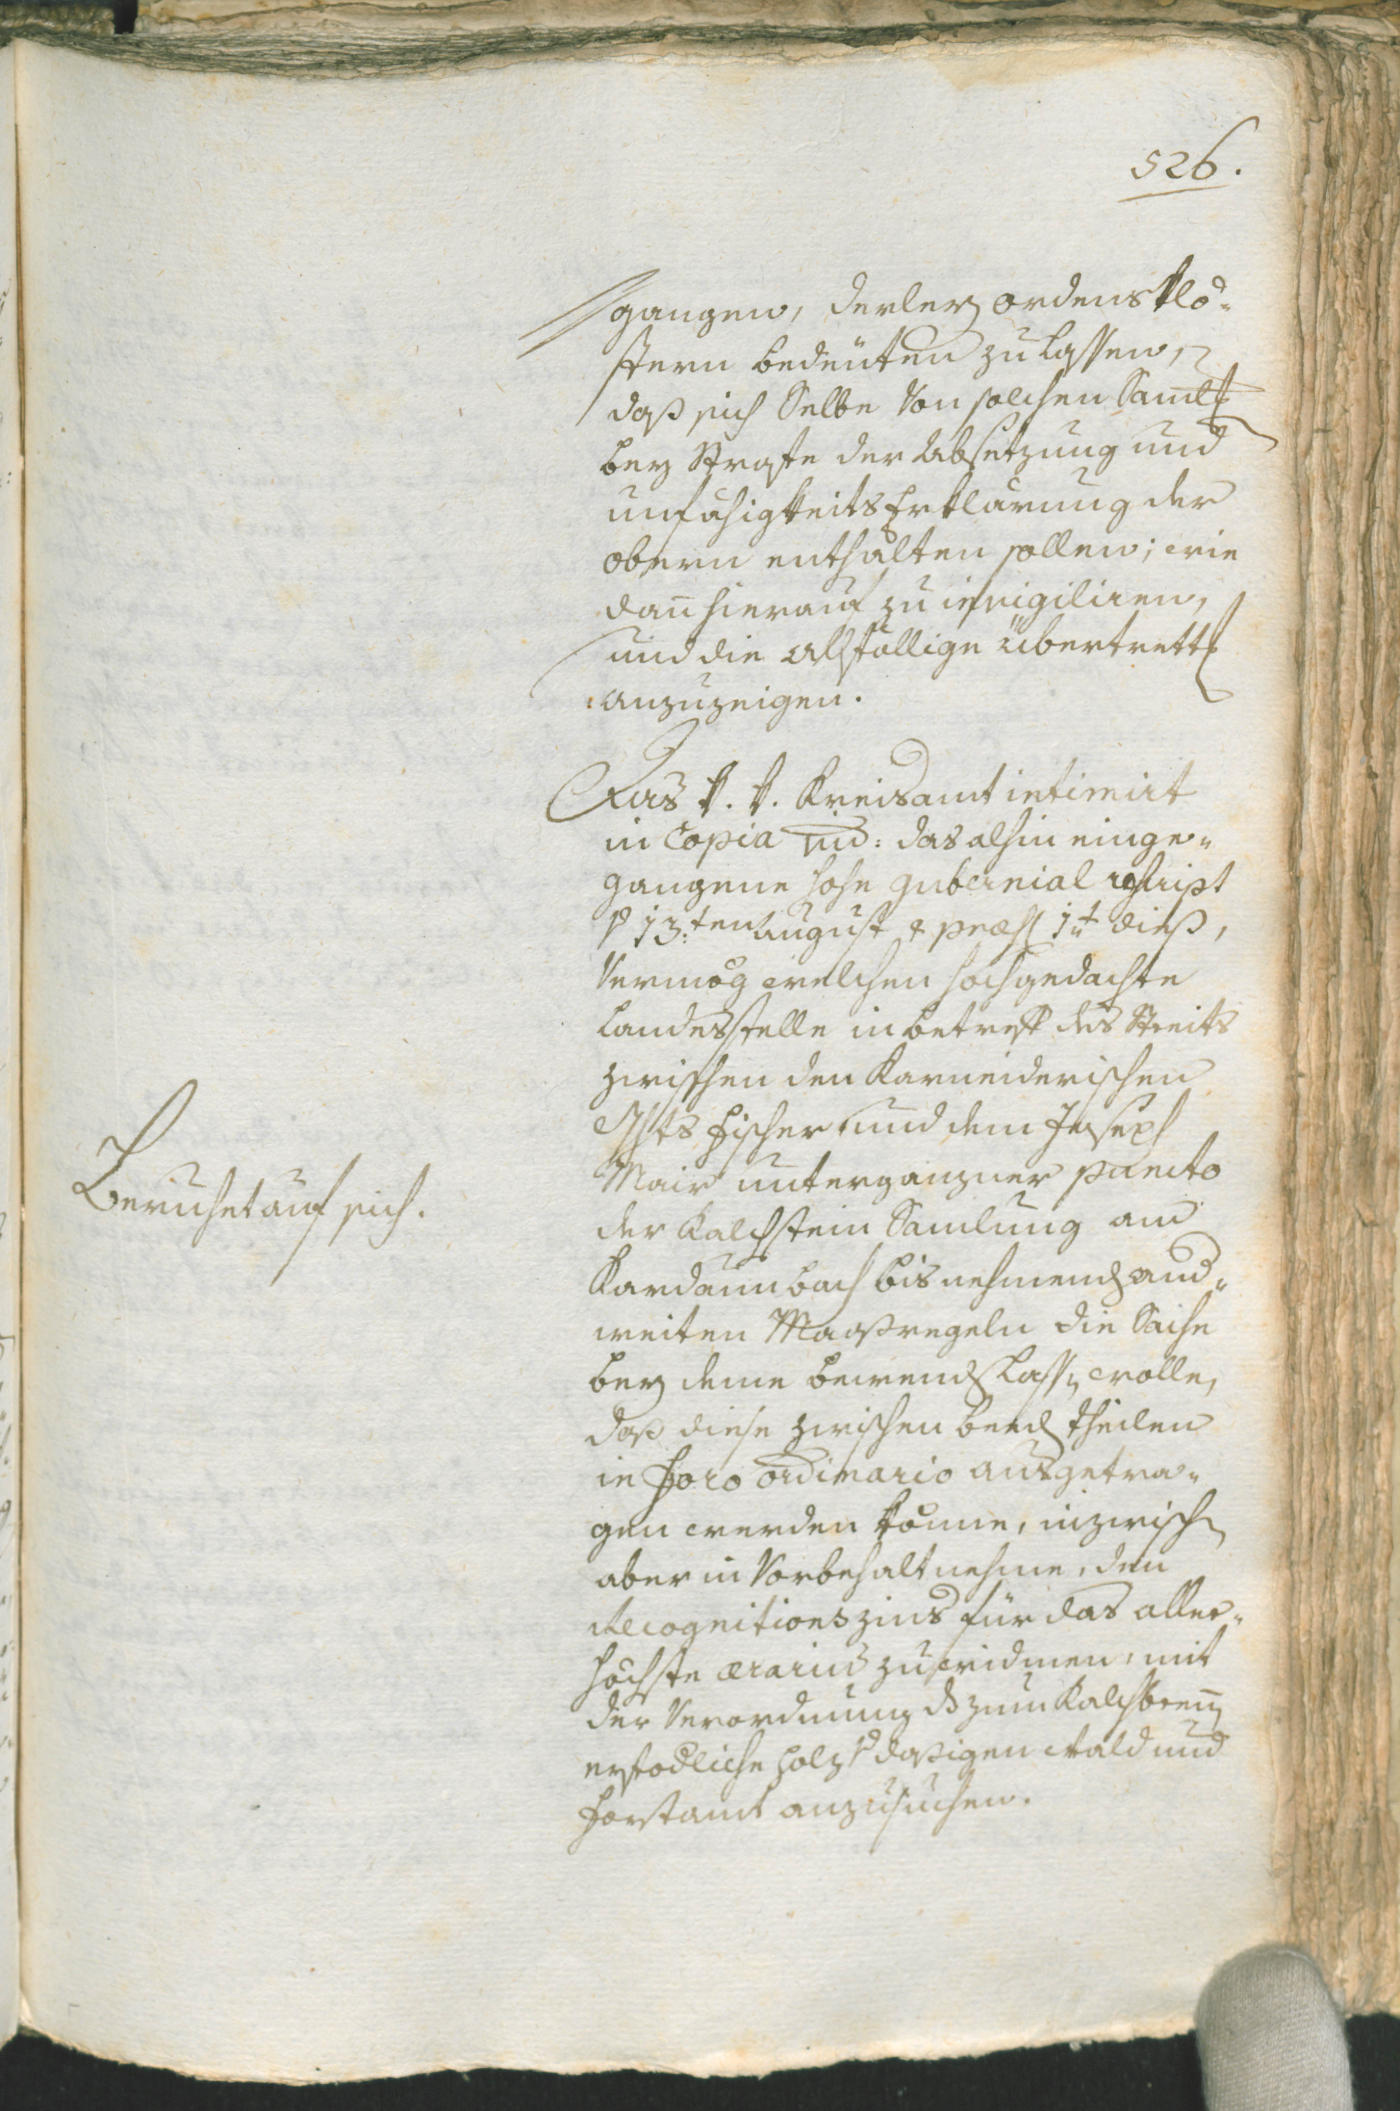 526.
gangen, derley ordens Klö-
stern bedeuten zu lassen,
daß sich Selbe von solchen Saml:
bey Strafe der Absetzung und
unfähigkeits Erklärung der
obern enthalten sollen; wie
dan hierauf zu invigiliren,
und die allfällige übertrett:
anzuzeigen.
Das k. k. Kreisamt intimirt
in Copia vid: das alhin einge-
gangene hohe gubernial rescript
13.ten August & præs 1t dieß,
Vermög welchen hochgedachte
Landesstelle in betreff des Streits
zwischen den Karneiderischen
Ghts fischer und dem Joseph
Mair unterganzner puncto
der Kalchstein Samlung am
Kardaun bach bis nehmend and-
weiten Maaßregeln die Sache
bey deme bewend lassen wolle,
daß diese zwischen beed theilen
in foro ordinario ausgetra-
gen werden könne, inzwischen
aber in Vorbehalt nehme, den
Recognitionszins für das aller-
höchste ærarium zu widmen, mit
der Verordnung ds zum Kalchbrenen
erfodliche holz daßigen Wald und
forstamt anzusuchen.
Beruhet auf sich.